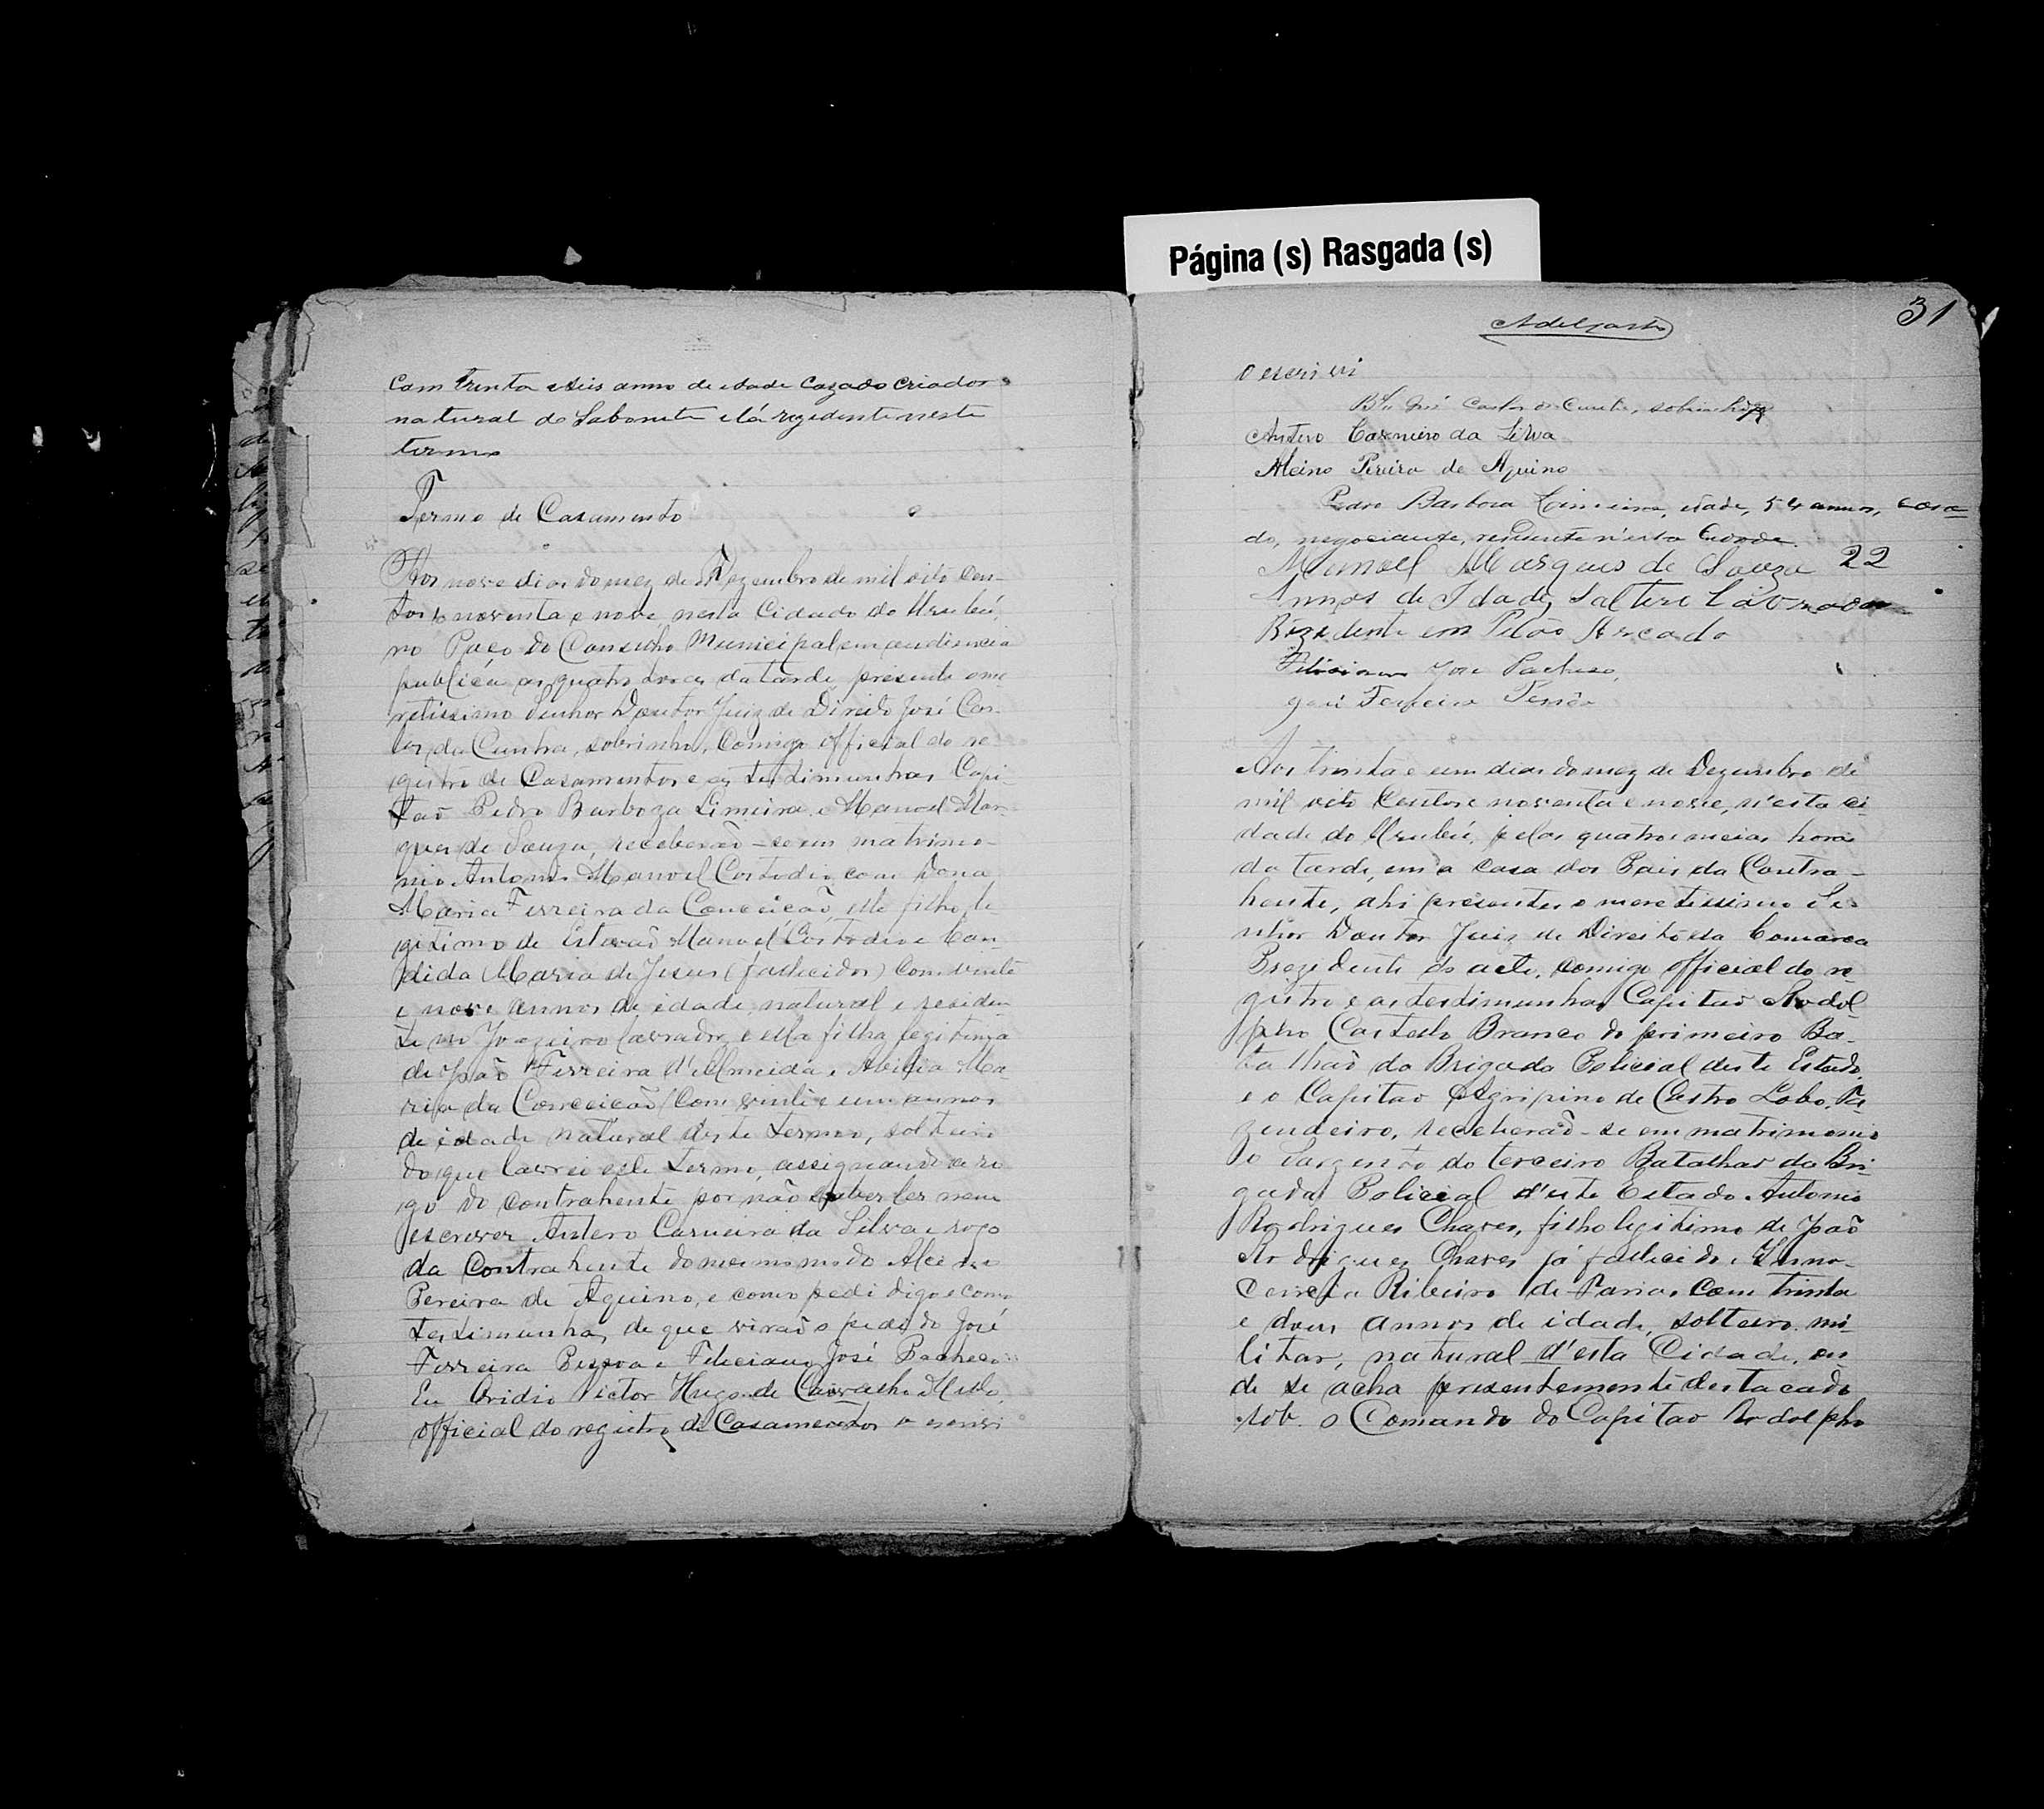 Página (s) Rasgada (s)
com trinta e seis anno de idade cazado criador
natural do Sabonete e lá rezidente neste
termo
Termo de Casamento
Aos nove dias do mez de Dezembro de mil oito cen-
tos e noventa e nove, nesta Cidade do Urubú,
no Paço do Conselho Municipal em audiencia
publica as quatro horas da tarde presente o me-
retissimo Senhor Doutor Juiz de Direito José Car-
los da Cunha, sobrinho, comigo official do re-
gistro de Casamentos e as testimunhas Capi-
tão Pedro Barboza Limeira e Manoel Mar-
ques de Souza, receberão-se em matrimo-
nio Antonio Manoel Costodio com Dona
Maria Ferreira da Conceição, elle filho le-
gitimo de Estevão Manoel Costodio e Can-
dida Maria de Jesus (fallecidos) com vinte
e nove annos de idade, natural e residen-
te no Joazeiro lavrador, e ella filha legitima
de João Ferreira d'Almeida e Ma-
ria da Conceição com vinte e um annos
de idade natural deste termo, solteiro
do que lavrei este termo, assignando a ro-
go do contrahente por não saber ler nem
escrever Antero Carneiro da Silva e rogo
da Contrahente do mesmo modo Alcino
Pereira de Aquino, e como pedi digo e como
testimunhas de que virão o pedido José
Ferreira e Feliciano José Pacheco
Eu Ovidio Victor Hugo de Carvalho Mello,
official do registro de Casamentos o escrevi
31
o escrevi
José Carlos da Cunha, sobrinho
Antero Carneiro da Silva
Alcino Pereira de Aquino
Pedro Barboza Limeira, idade, 54 annos, casa-
do, negociante, residente n'esta Cidade.
Manoel Marques de Souza 22
Annos de Idade, Saltero Lavrador
Rezidente em Pilão Arcado
Feliciano José Pacheco,
José Ferreira
Aos trinta e um dias do mez de Dezembro de
mil oito centos e noventa e nove, n'esta ci-
dade do Urubú, pelas quatro e meias horas
da tarde, em a casa dos Pais da Contra-
hente, ahi presentes o meretissimo Se-
nhor Doutor Juiz de Direito da Comarca
Prezidente do acto, comigo official do re-
gistro e as testimunhas Capitão Rodol-
pho Castello Branco do primeiro Ba-
talhão da Brigada Policial deste Estado
e o Capitão Agripino de Castro Lobo, Fa-
zendeiro, receberão-se em matrimonio
o Sargento do terceiro Batalhão da Bri-
gada Policial d'este Estado Antonio
Rodrigues Chaves, filho legitimo de João
Rodrigues Chaves já fallecido e Inno-
cencia Ribeiro de Farias com trinta
e dous annos de idade, solteiro, mi-
litar, natural d'esta Cidade, on-
de se acha presentemente destacado
sob o Comando do Capitão Rodolpho